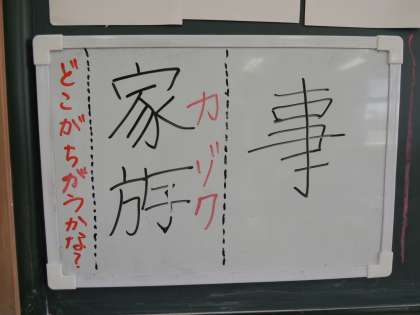 事
家斿
カゾク
どこがちがうかな?